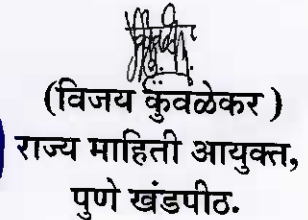 (विजय कुंवळेकर )
राज्य माहिती आयुक्त,
पुणे खंडपीठ.